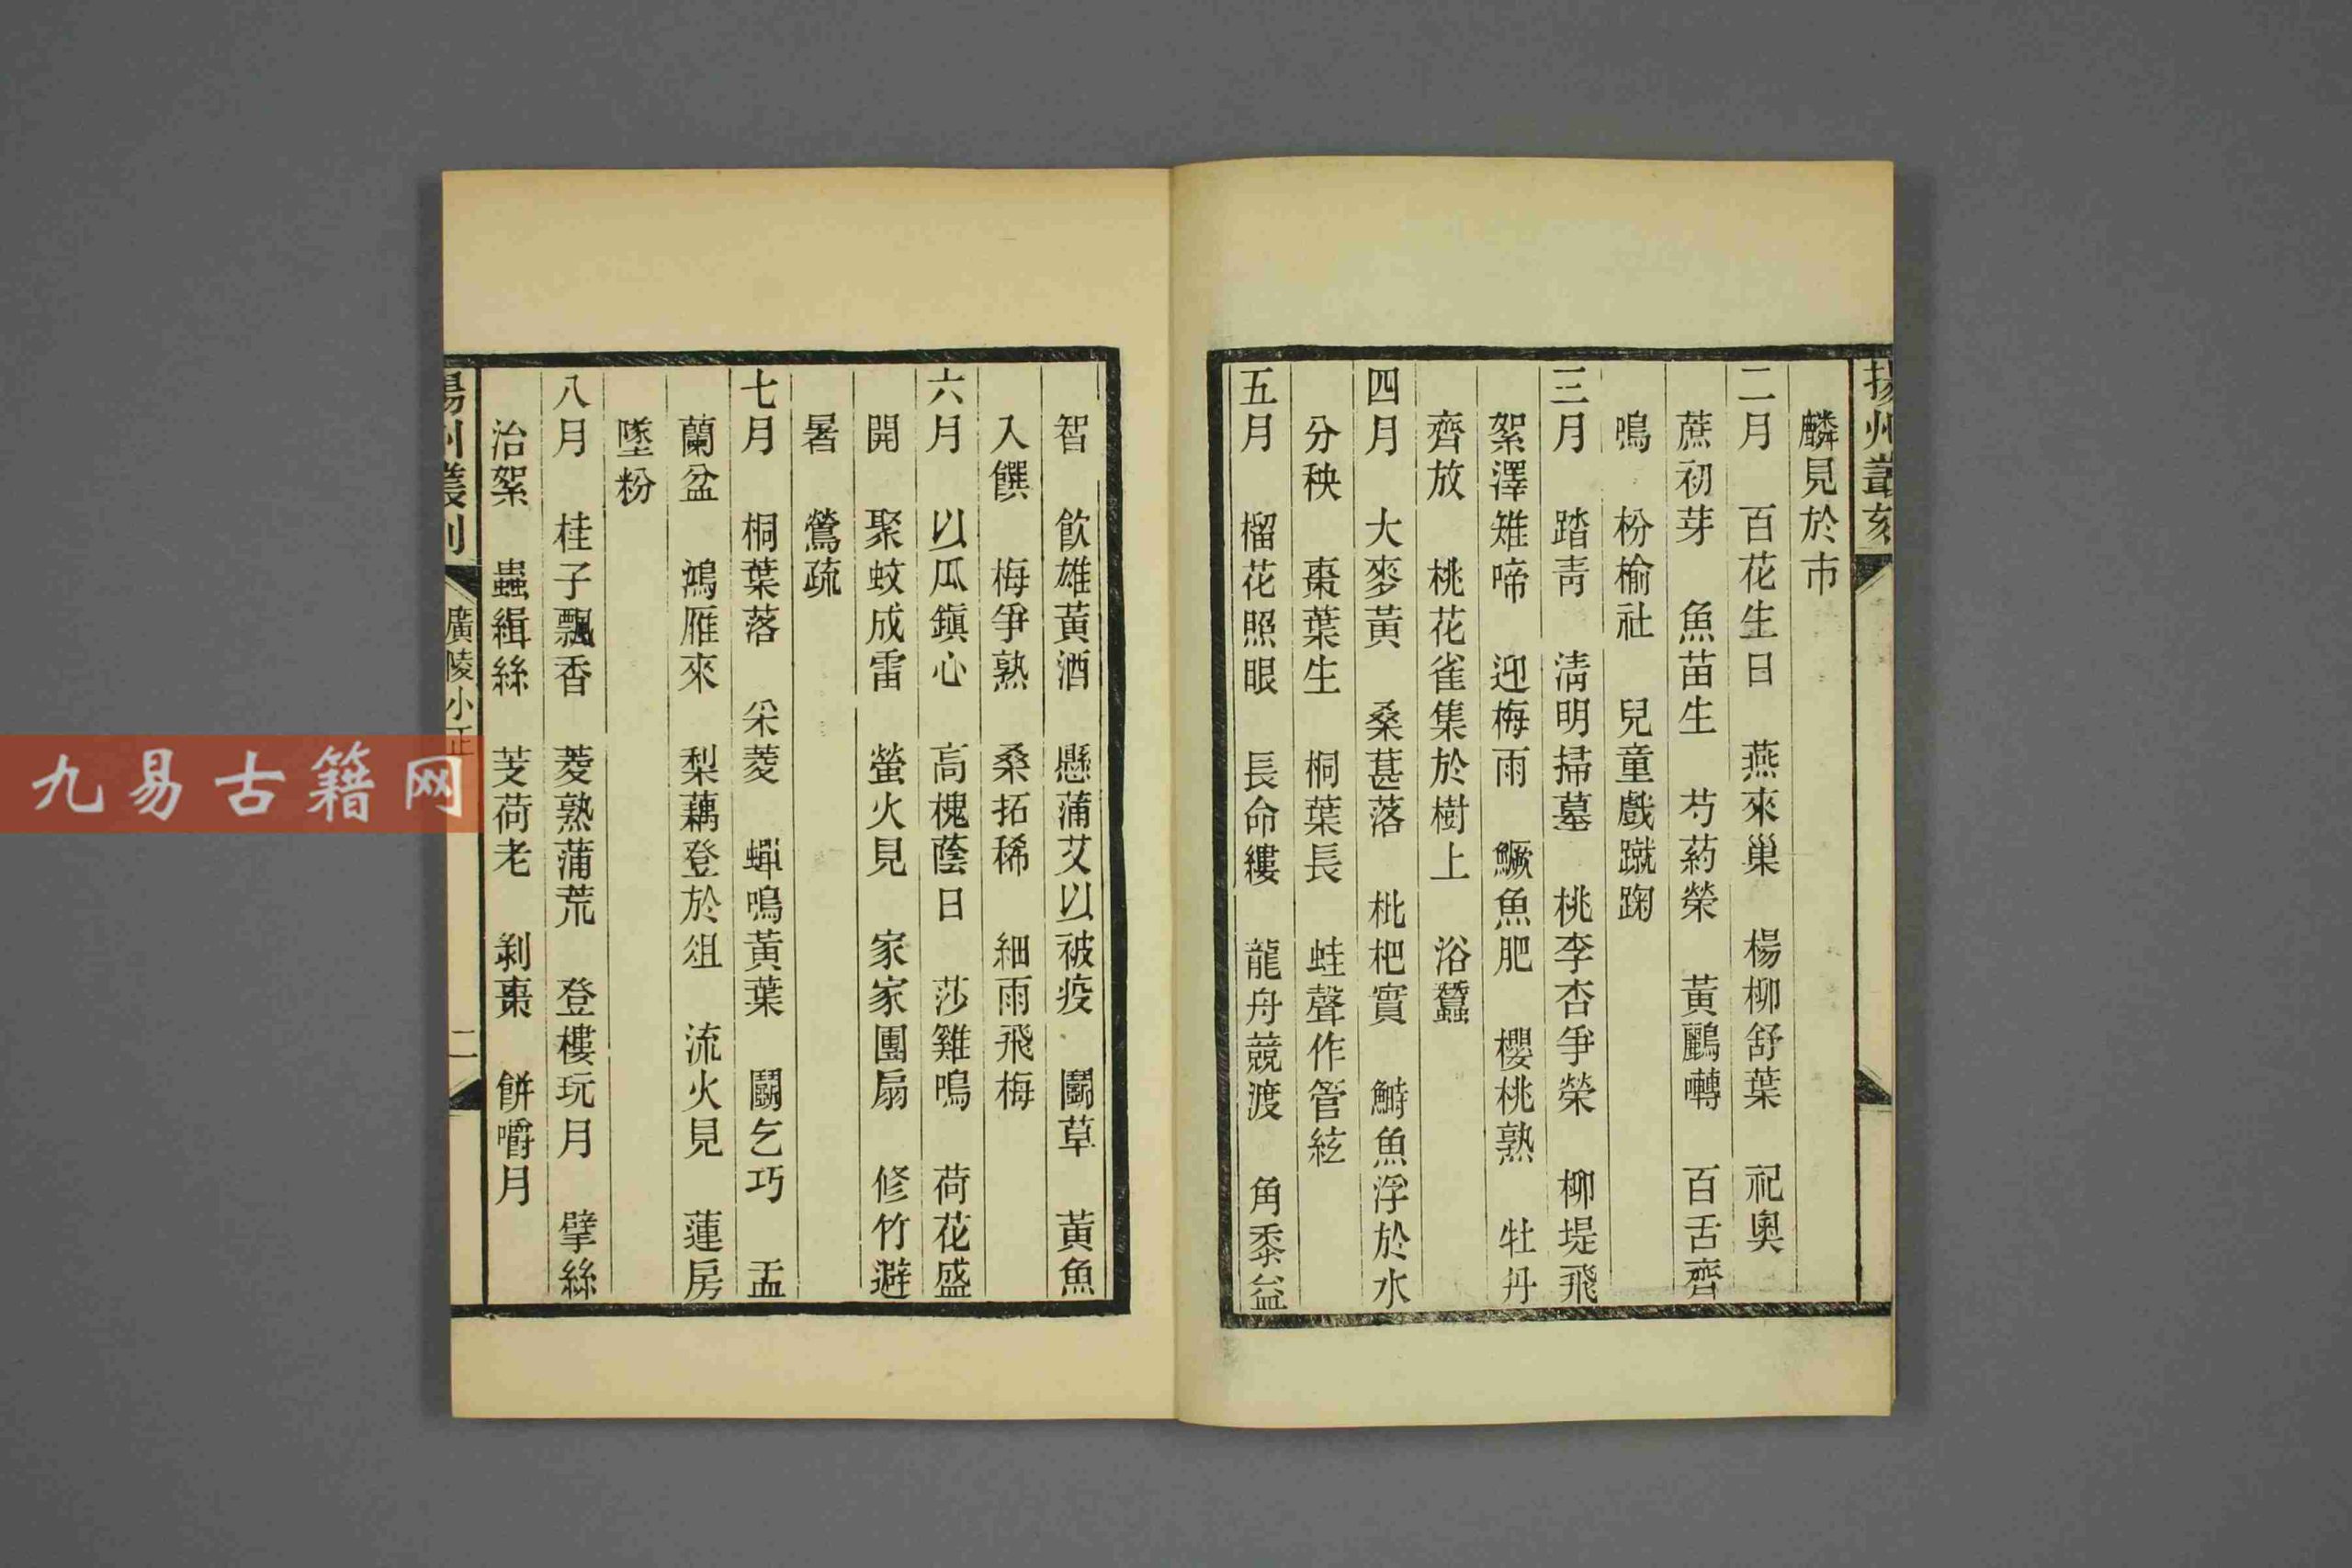 揚州叢刻
麟見於市
二月　百花生日　燕來巢　楊柳舒葉　祀奧
蔗初芽　魚苗生　芍葯榮　黃鸝囀　百舌齊
鳴　枌榆社　兒童戲蹴踘
三月　踏靑　淸明掃墓　桃李杏爭榮　柳堤飛
絮澤雉啼　迎梅雨　鱖魚肥　櫻桃熟　牡丹
齊放　桃花雀集於樹上　浴蠶
四月　大麥黃　桑葚落　枇杷實　鰣魚浮於水
分秧　棗葉生　桐葉長　蛙聲作管絃
五月　榴花照眼　長命縷　龍舟競渡　角黍益
智　飮雄黃酒　懸蒲艾以祓疫　鬬草　黃魚
入饌　梅爭熟　桑拓稀　細雨飛梅
六月　以瓜鎭心　高槐蔭日　莎雞鳴　荷花盛
開　聚蚊成雷　螢火見　家家團扇　修竹避
暑　鶯疏
七月　桐葉落　采菱　蟬鳴黃葉　鬬乞巧　盂
蘭盆　鴻雁來　梨藕登於俎　流火見　蓮房
墜粉
八月　桂子飄香　菱熟蒲荒　登樓玩月　擘絲
治絮　蟲緝絲　芰荷老　剝棗　餅嚼月
揚州叢刻
廣陵小正
二
九易古籍网